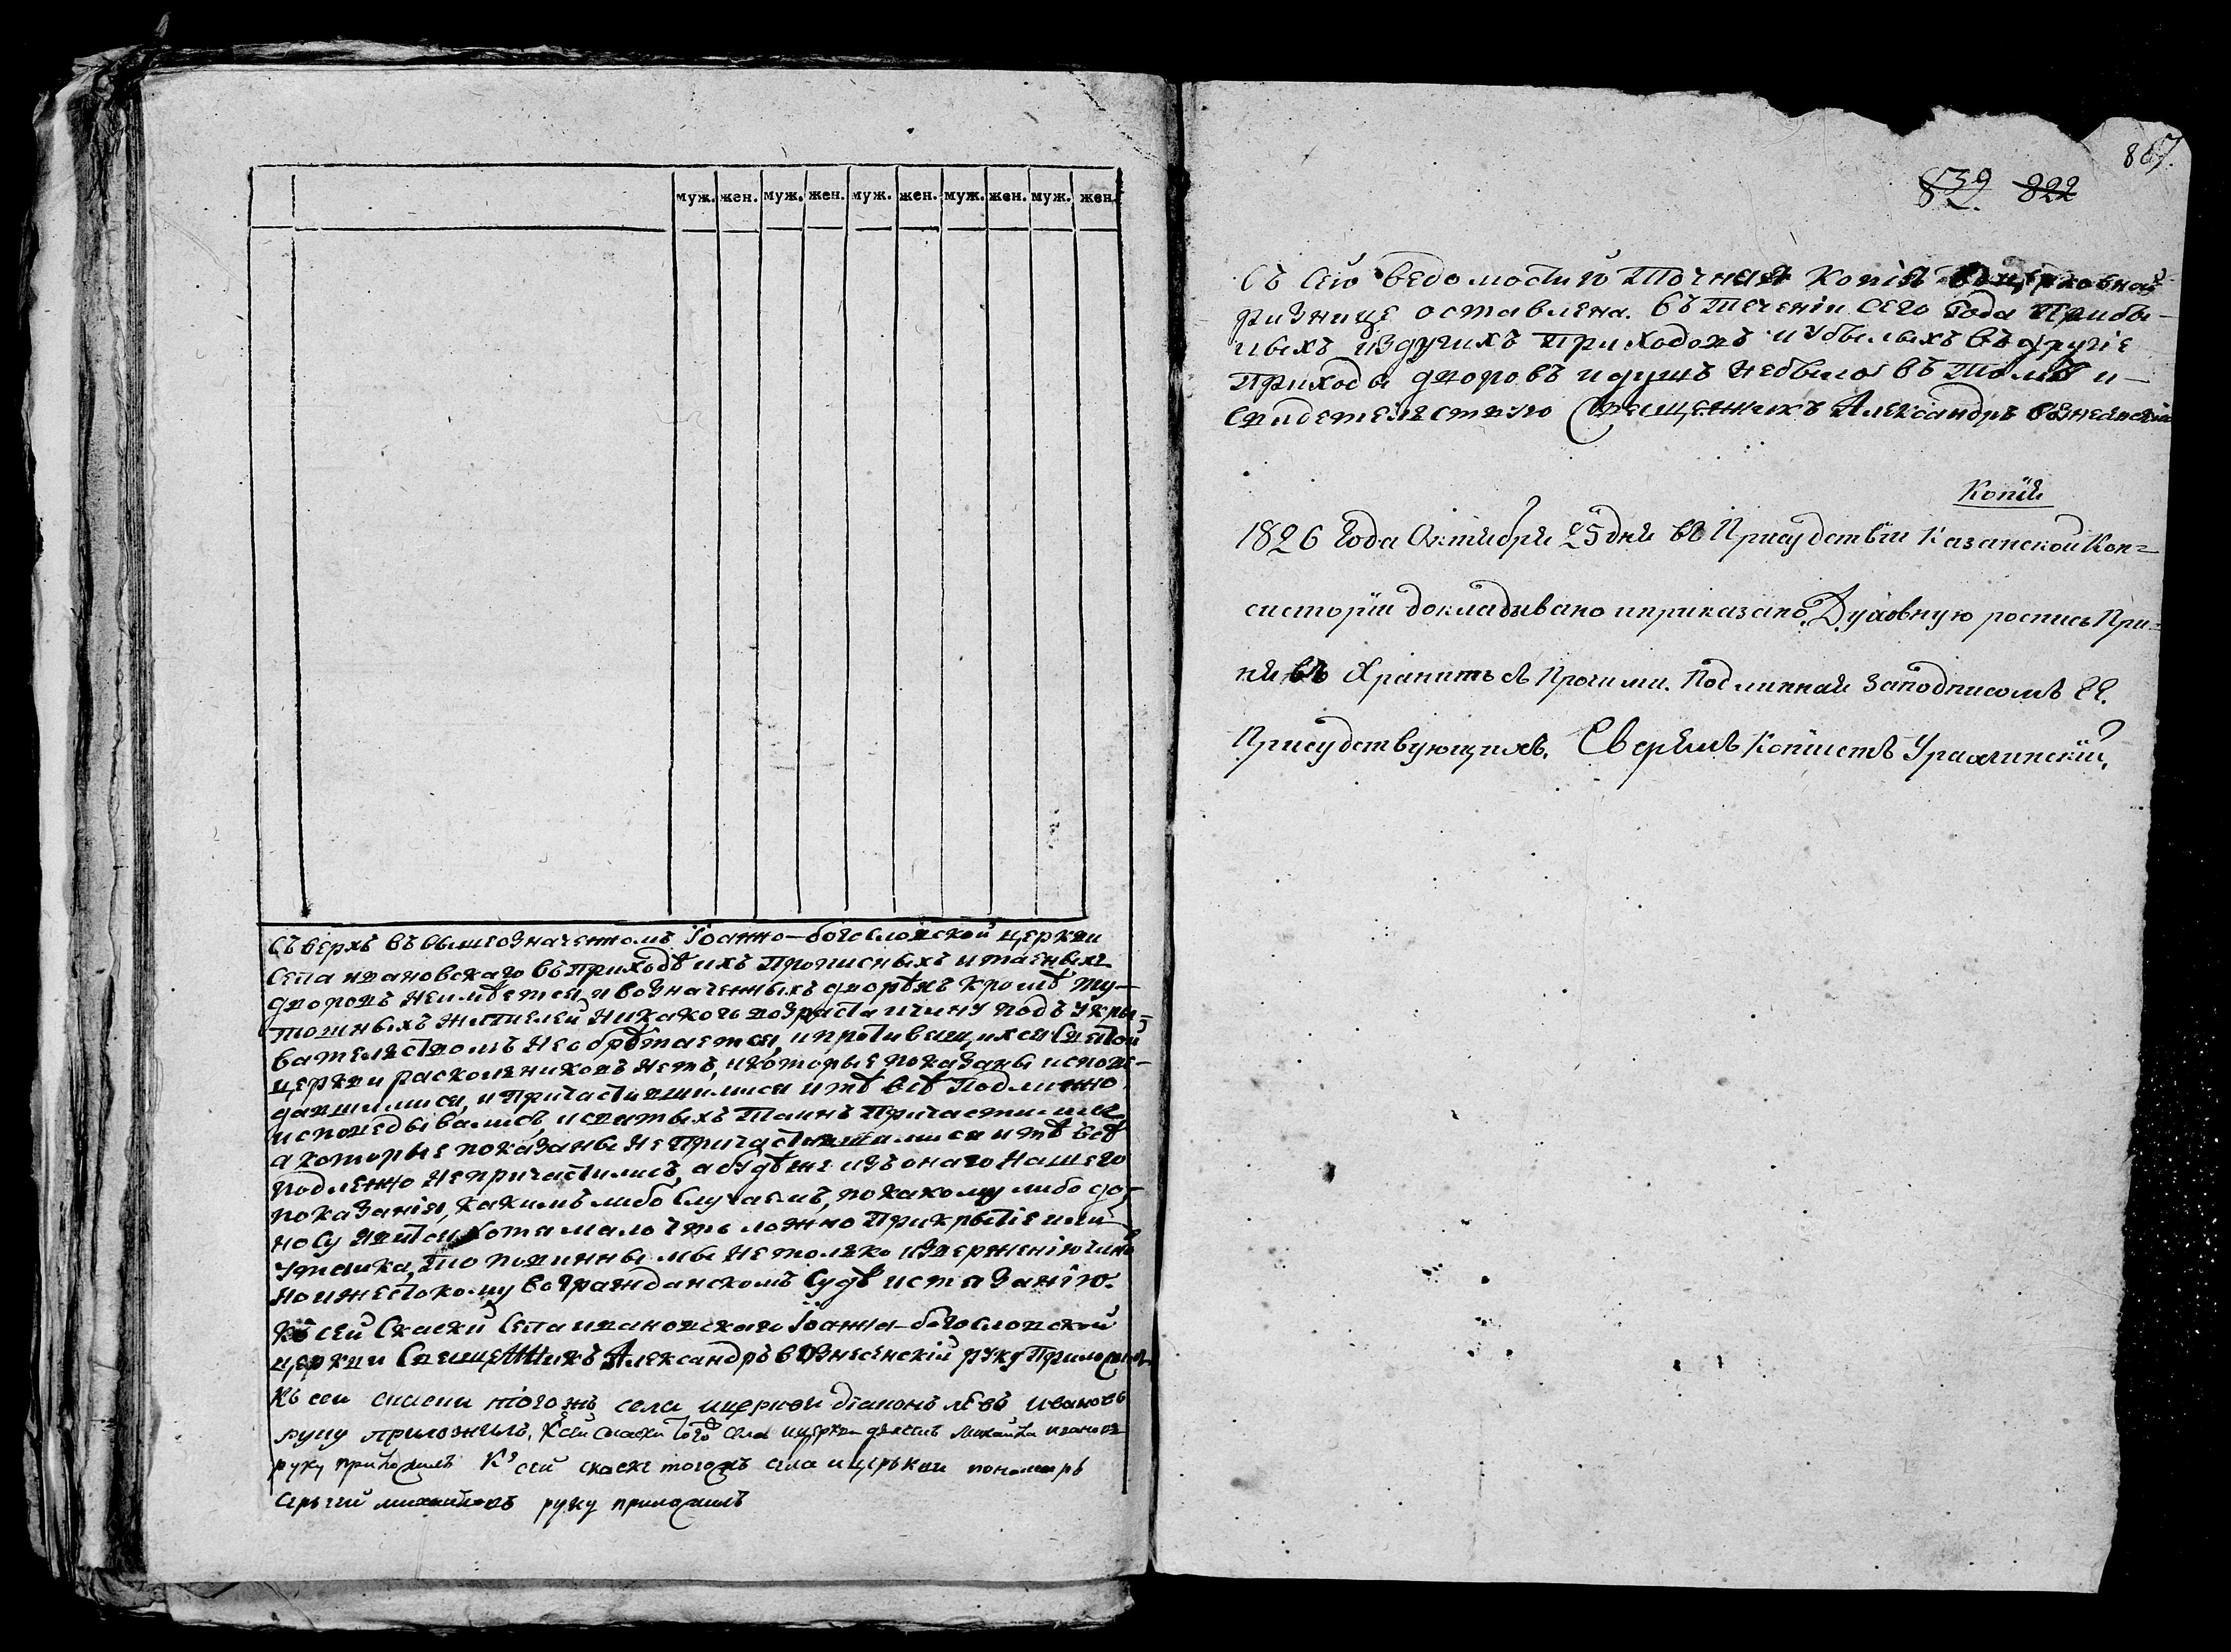 муж. жен. муж. жен. муж. жен. муж. жен. муж. жен.
Съверхъ въ вышеозначенномъ Iоанно-богословской церкви
Села ивановскаго въ приходѣ ихъ прописныхъ и таеныхъ
дворовъ неимѣется, и возначенныхъ дворѣхъ кромѣ ту-
тошныхъ жителей никакого возраста ичину подъ укры-
вателствомъ необрѣтается, ипротивящихся святой
церкви расколниковъ нетъ, икоторые показаны испове-
давшимися, и причастившимися итѣ всѣ подлинно
исповедывались, исвятыхъ таинъ причастились
а которые показаны непричастившимися итѣ всѣ
подленно непричастились, абудѣже изъ онаго нашего
показанiя, какимъ либо случаемъ, покакому либо до-
носу явится хотя мало что ложно прикрытiе или
утайка, то повинны мы нетолко извержению чина
но ижестокому вогражданскомъ Судѣ истязанiю.
Къ сей Скаски Села ивановскаго Iоанна-богословской
церкви Священникъ Александръ вознесенскiй руку приложилъ
Къ сей скаски тогожъ села ицеркви дiаконъ левъ ивановъ
руку приложилъ, Ксей скаски того села ицеркви дьячекъ михайла ивановъ
руку приложилъ Къ сей скаске тогожъ села ицерькви пономарь
Серьгей михайловъ руку приложилъ
867.
839 822
Съ сей ведомостий точная копiя вцерковной
ризнице оставлена. въ течении сего года прибы-
лыхъ издугихъ приходовъ иубылыхъ въ другiе
приходы дворовъ идушъ небыло въ томъ и
свидетелствую Священникъ Александръ вознесенскiй
Копiя
1826 года Октября 25 дня въ Присудствiи Казанской Кон=
систорiи докладывано иприказано. Духовную роспись При=
нявъ Хранить съ Прочими. Подлинная заподписомъ ГГ.
Присудствующихъ. Сверялъ Копiистъ